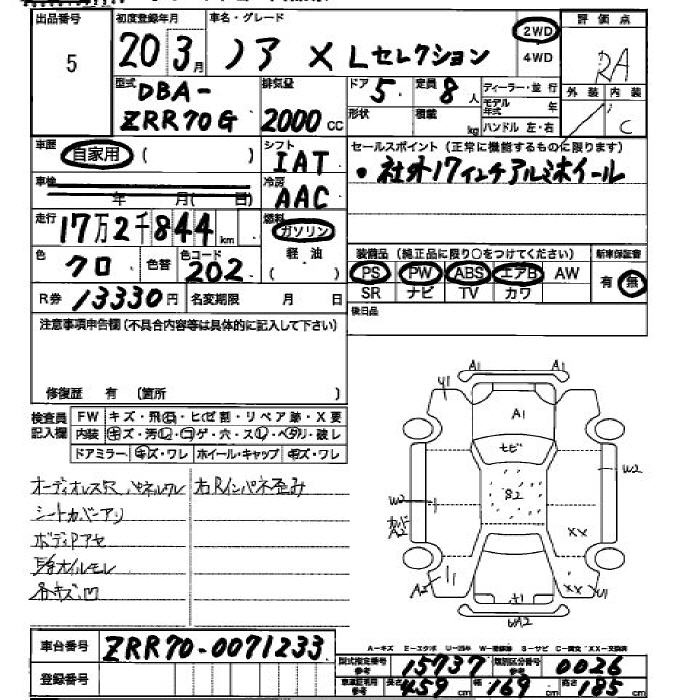 出品番号 初度登録年月 車名・グレード 評価点
5 20 3月 ノア X Lセレクション 2WD RA
4WD
型式 排気量 ドア 定員 ディーラー・並行 外装 内装
DBA- 5 8人 モデル年式 年 C
ZRR70G 2000cc 形状 積載 kg ハンドル 左・右
車歴 自家用 ( ) シフト IAT セールスポイント (正常に機能するものに限ります)
車検 年 月( 日) 冷房 AAC ・社外17インチアルミホイール
走行 17万2千844km 燃料 ガソリン
軽油 装備品 (純正品に限り○をつけてください) 新車保証書
色 クロ 色替 色コード 202 PS PW ABS エアB AW 有 無
R券 13330円 名変期限 月 日 SR ナビ TV カワ
後日品
注意事項申告欄 (不具合内容等は具体的に記入して下さい)
修復歴 有 (箇所 )
検査員記入欄 FW キズ・飛石・ヒビ割・リペア跡・X要
内装 キズ・汚レ・コゲ・穴・スレ・ベタリ・破レ
ドアミラー キズ・ワレ ホイール・キャップ キズ・ワレ
オーディオレス穴 パネルワレ 右Rインパネ歪み
シートカバーアリ
ボディPアセ
オイルモレ
各キズ凹
A1 A1
U1 A1
ヒビ
S2
W2 W2
カバー A2
XX
A2 U1 XX U1
WA2
車台番号 ZRR70-0071233
A-キズ E-エクボ U-凹み W-補修跡 S-サビ C-腐食 XX-交換済
型式指定番号 15737 類別区分番号 0026
登録番号 車検証写用参考 長さ参考 459cm 幅 169cm 高さ 185cm